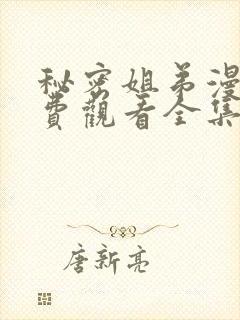 秘密姐弟漫
費觀看全集
唐新亮